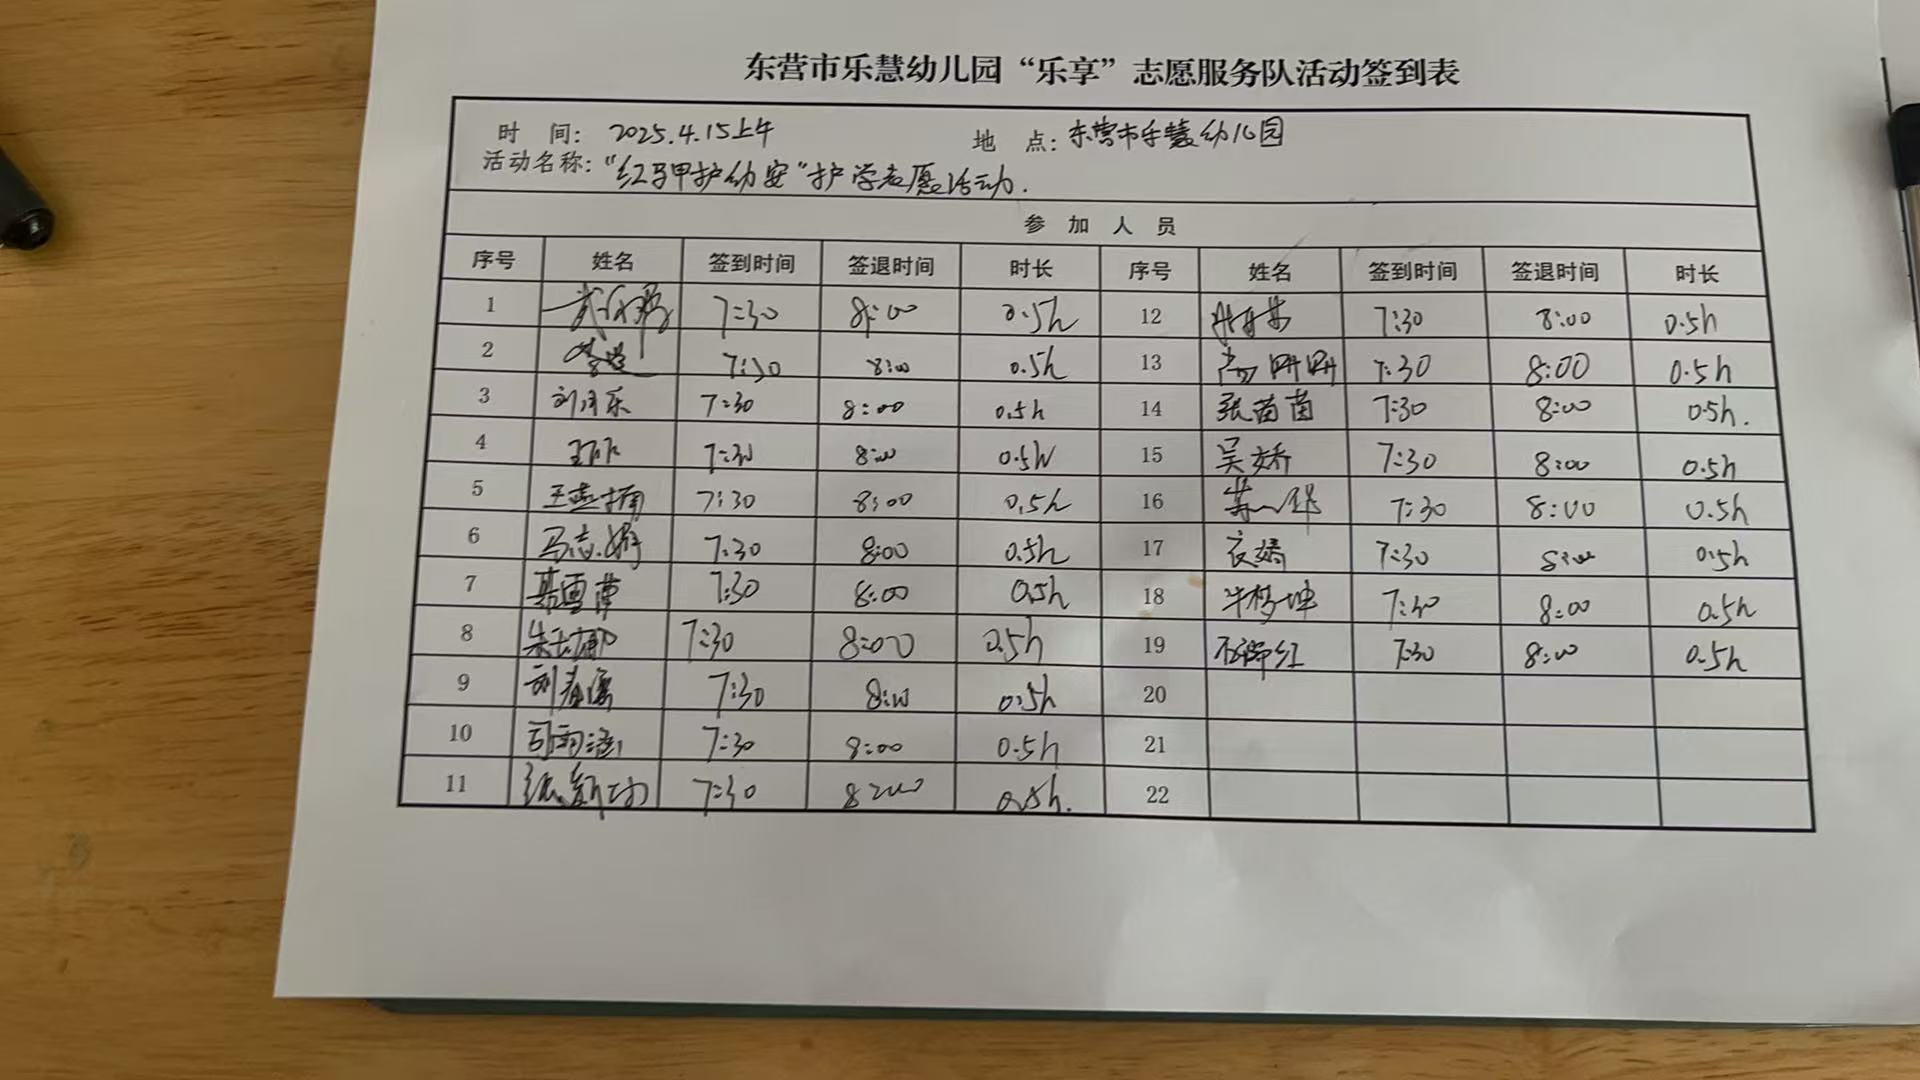 东营市乐慧幼儿园“乐享”志愿服务队活动签到表
时 间: 2025.4.15上午 地 点: 东营市乐慧幼儿园
活动名称: “红马甲护幼安”护学志愿活动.
参 加 人 员
序号 姓名 签到时间 签退时间 时长 序号 姓名 签到时间 签退时间 时长
1 7:30 8:00 0.5h 12 7:30 8:00 0.5h
2 7:30 8:00 0.5h 13 高明明 7:30 8:00 0.5h
3 刘月乐 7:30 8:00 0.5h 14 张苗苗 7:30 8:00 0.5h.
4 7:30 8:00 0.5h 15 吴娇 7:30 8:00 0.5h
5 王燕楠 7:30 8:00 0.5h 16 7:30 8:00 0.5h
6 马志娟 7:30 8:00 0.5h 17 衣娇 7:30 8:00 0.5h
7 7:30 8:00 0.5h 18 牛梦坤 7:30 8:00 0.5h
8 7:30 8:00 0.5h 19 7:30 8:00 0.5h
9 刘春儒 7:30 8:00 0.5h 20
10 司雨涵 7:30 8:00 0.5h 21
11 7:30 8:00 0.5h. 22